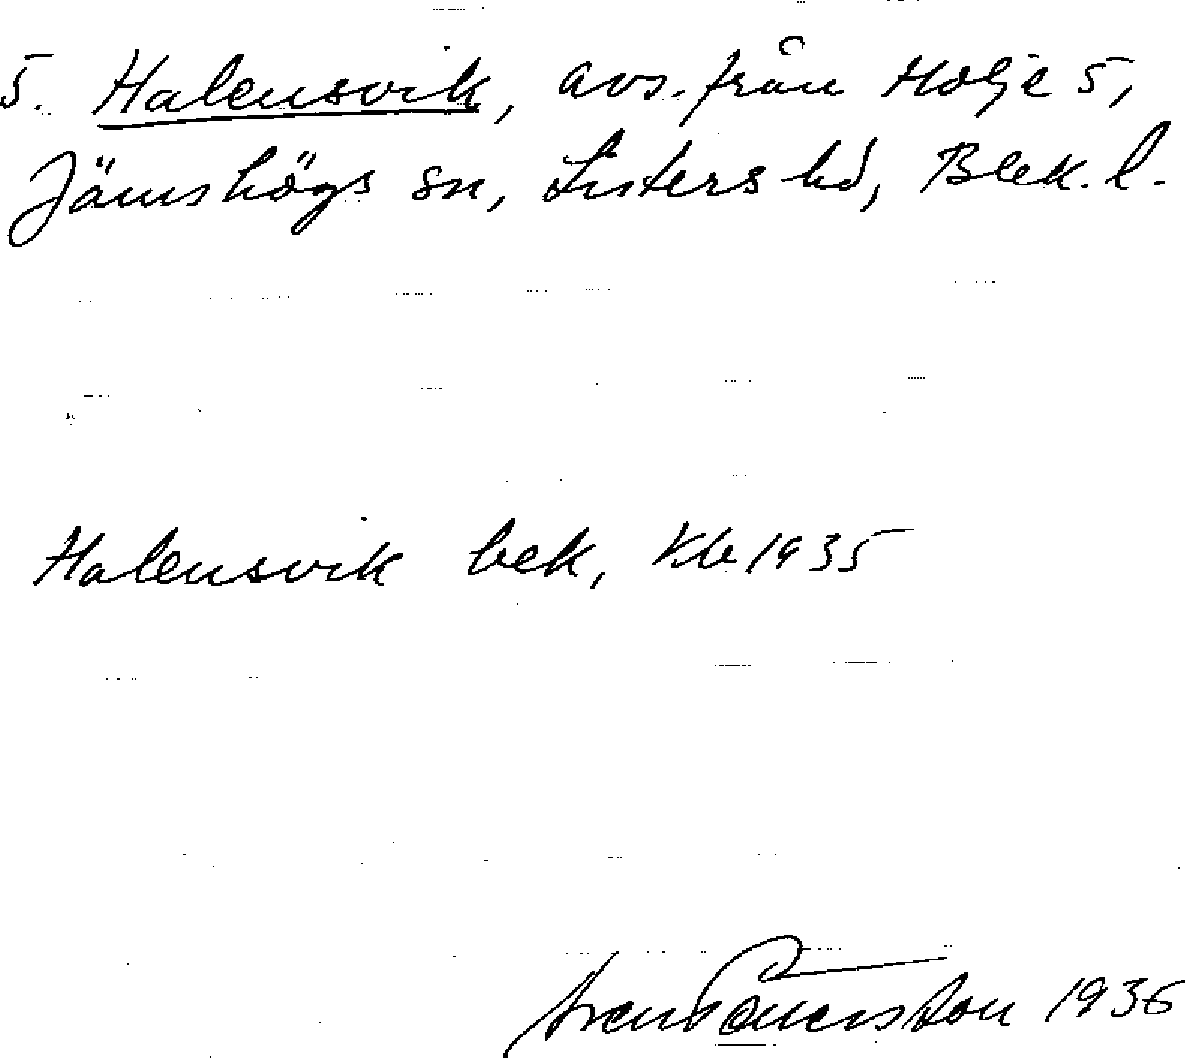 5. Halensvik, avs. från Holje 5,
Jämshögs sn, Listers hd, Blek. l.
Halensvik bek, Kb 1935
1936